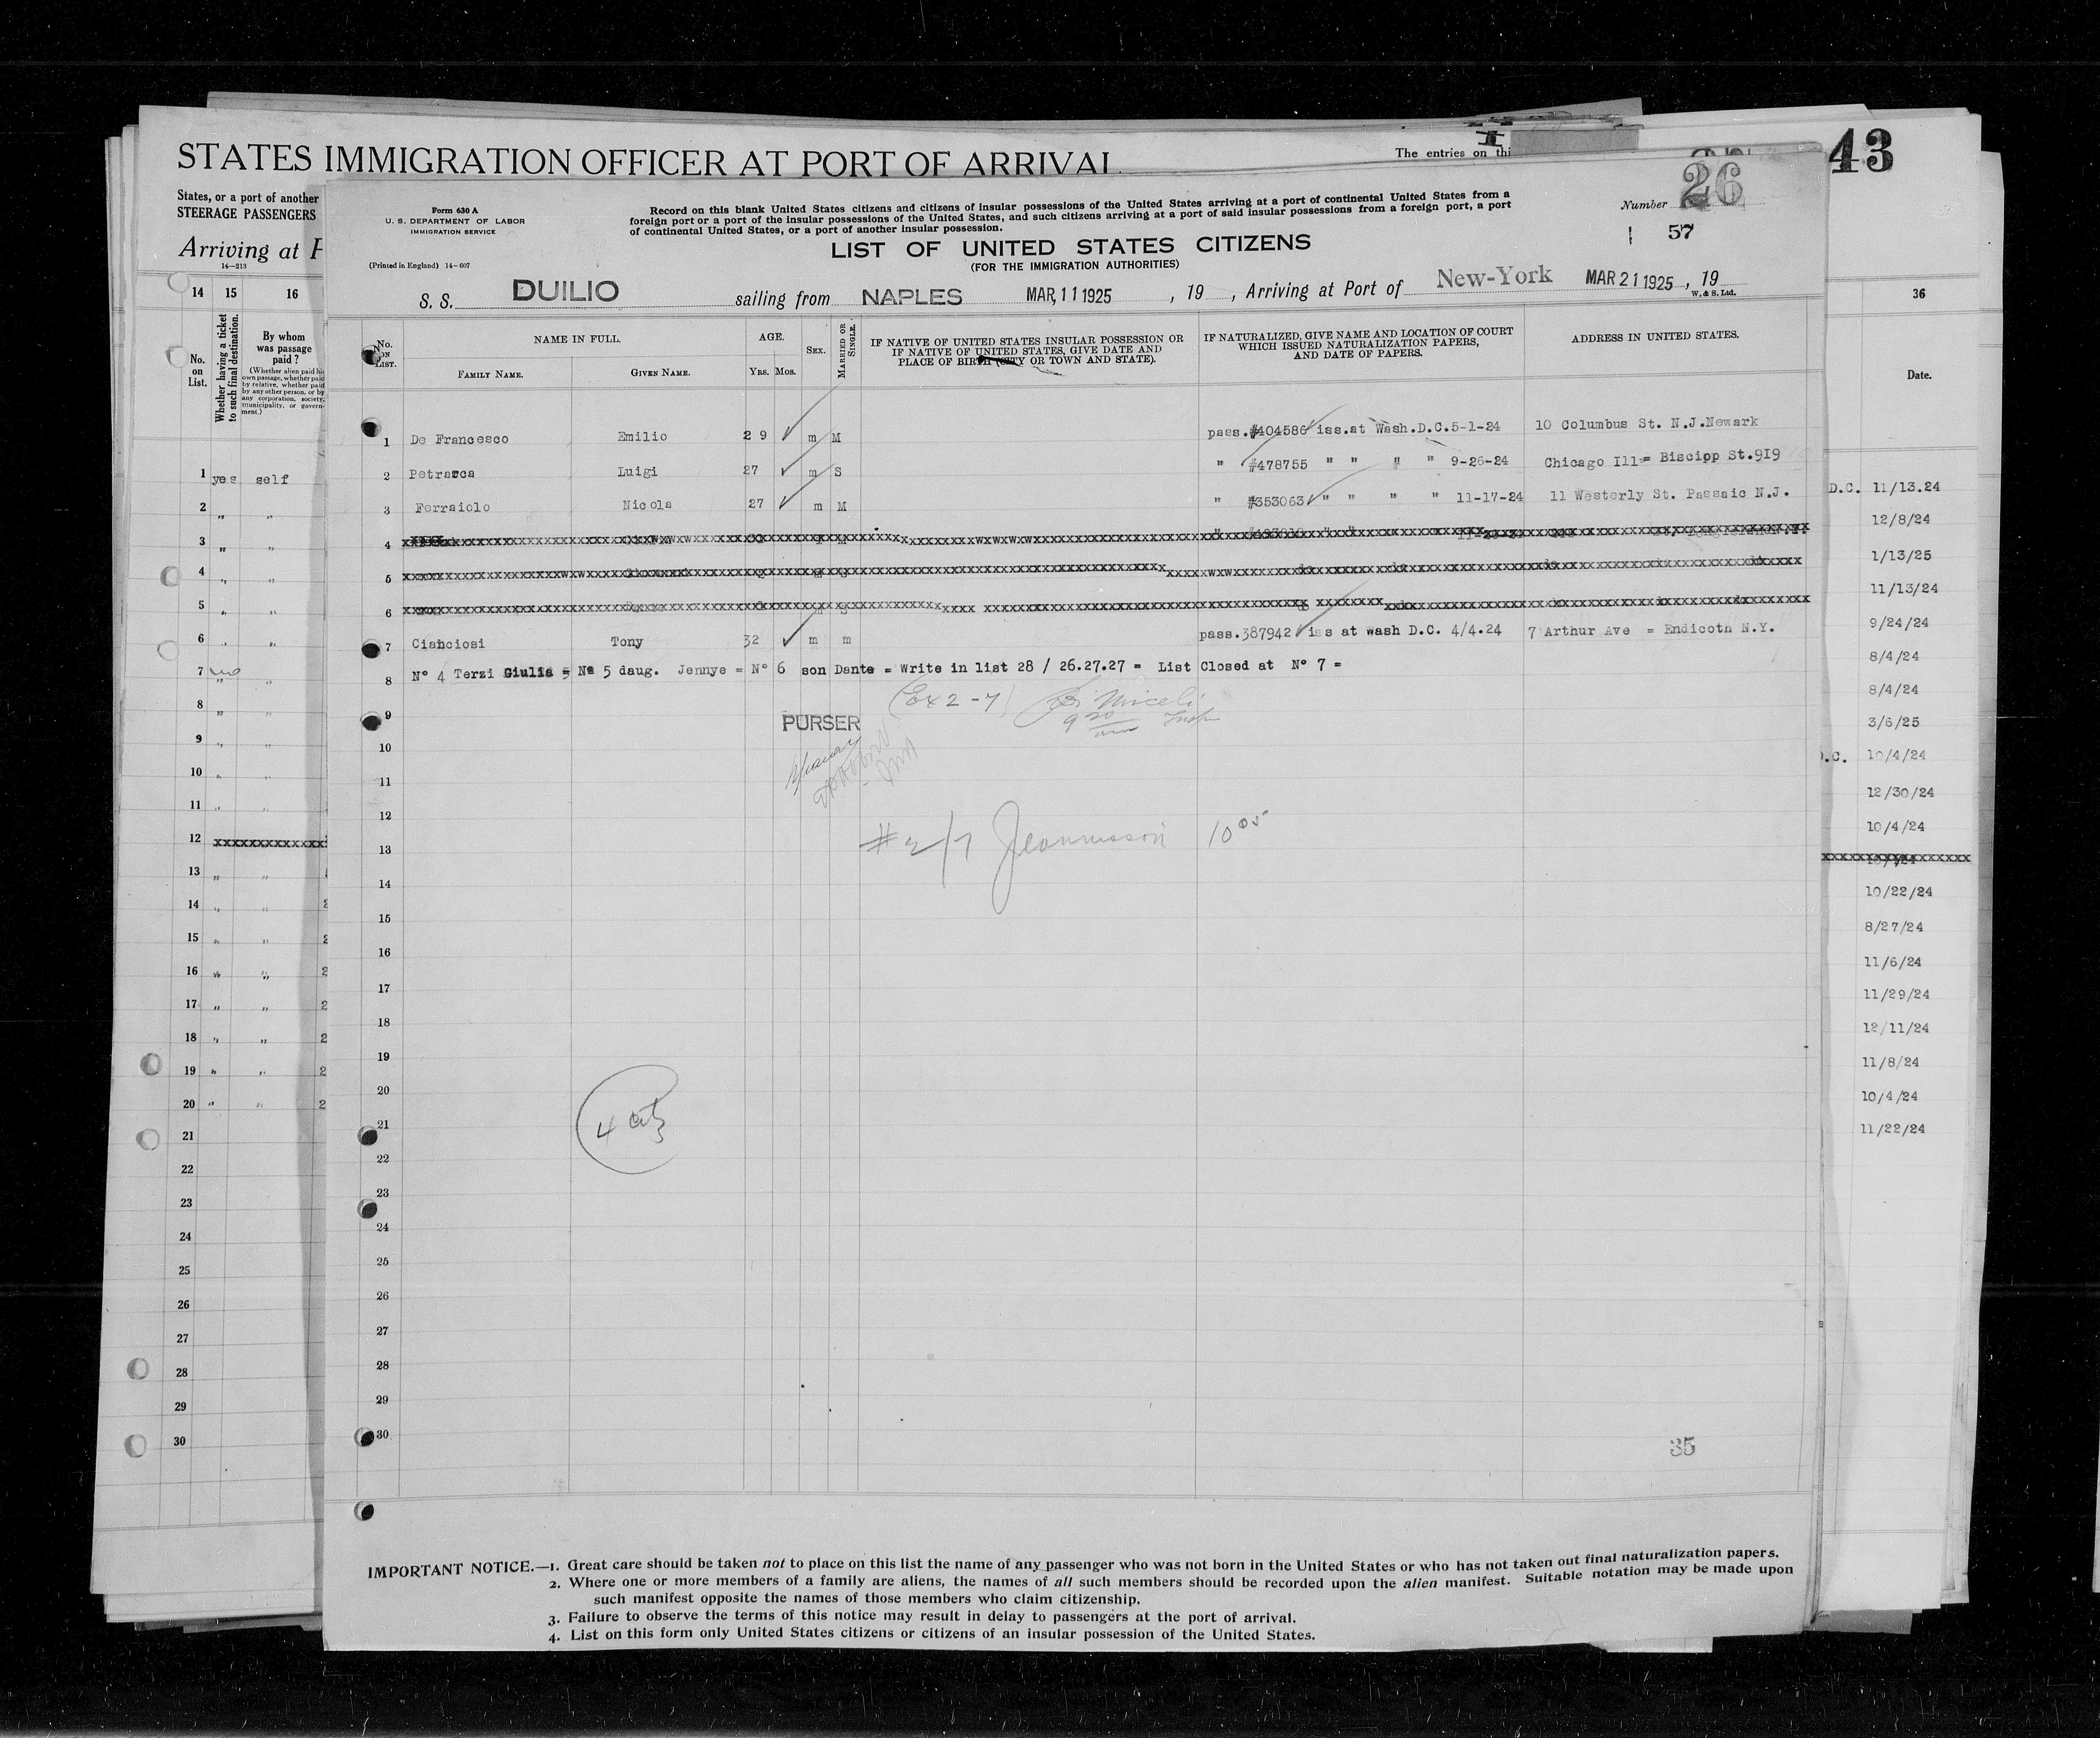 STATES IMMIGRATION OFFICER AT PORT OF ARRIVAL
The entries on thi
43
States, or a port of another
STEERAGE PASSENGERS
Arriving at P
14—213
Form 630 A
U. S. DEPARTMENT OF LABOR
IMMIGRATION SERVICE
(Printed in England) 14—607
Record on this blank United States citizens and citizens of insular possessions of the United States arriving at a port of continental United States from a
foreign port or a port of the insular possessions of the United States, and such citizens arriving at a port of said insular possessions from a foreign port, a port
of continental United States, or a port of another insular possession.
Number 26
57
LIST OF UNITED STATES CITIZENS
(FOR THE IMMIGRATION AUTHORITIES)
S. S. DUILIO sailing from NAPLES MAR, 11 1925 , 19 , Arriving at Port of New-York MAR 21 1925 , 19
W. & S. Ltd.
No. ON LIST.
NAME IN FULL.
FAMILY NAME.
GIVEN NAME.
AGE.
Yrs. Mos.
SEX.
MARRIED OR SINGLE.
IF NATIVE OF UNITED STATES INSULAR POSSESSION OR
IF NATIVE OF UNITED STATES, GIVE DATE AND
PLACE OF BIRTH (CITY OR TOWN AND STATE).
IF NATURALIZED, GIVE NAME AND LOCATION OF COURT
WHICH ISSUED NATURALIZATION PAPERS,
AND DATE OF PAPERS.
ADDRESS IN UNITED STATES.
1 De Francesco Emilio 29 m M pass.#404586 iss.at Wash.D.C.5-1-24 10 Columbus St. N.J.Newark
2 Petrarca Luigi 27 m S " #478755 " " " " 9-26-24 Chicago Ill= Biscipp St.9I9
3 Ferraiolo Nicola 27 m M " #353063 " " " " 11-17-24 11 Westerly St. Passaic N.J.
4
5
6
7 Cianciosi Tony 32 m m pass.387942 iss at wash D.C. 4/4.24 7 Arthur Ave = Endicoth N.Y.
8 N° 4 Terzi Giulia = N° 5 daug. Jennye = N° 6 son Dante = Write in list 28 / 26.27.27 = List Closed at N° 7 =
(Ex 2-7)
9 PURSER
10
11
12
13 #2/7 10 05
14
15
16
17
18
19
20
21 4
22
23
24
25
26
27
28
29
30
35
IMPORTANT NOTICE.—1. Great care should be taken not to place on this list the name of any passenger who was not born in the United States or who has not taken out final naturalization papers.
2. Where one or more members of a family are aliens, the names of all such members should be recorded upon the alien manifest. Suitable notation may be made upon
such manifest opposite the names of those members who claim citizenship.
3. Failure to observe the terms of this notice may result in delay to passengers at the port of arrival.
4. List on this form only United States citizens or citizens of an insular possession of the United States.
14 15 16
No. on List.
Whether having a ticket to such final destination.
By whom
was passage
paid ?
(Whether alien paid his
own passage, whether paid
by relative, whether paid
by any other person, or by
any corporation, society,
municipality, or govern-
ment.)
1 yes self
2 " "
3 " "
4 " "
5 " "
6 " "
7 no " "
8 " "
9 " "
10 " "
11 " "
12 xxxxxxxxxxxxx
13 " "
14 " " 2
15 " " 2
16 " " 2
17 " " 2
18 " " 2
19 " " 2
20 " " 2
21
22
23
24
25
26
27
28
29
30
36
Date.
D.C. 11/13.24
12/8/24
1/13/25
11/13/24
9/24/24
8/4/24
8/4/24
3/6/25
D.C. 10/4/24
12/30/24
10/4/24
10/22/24
8/27/24
11/6/24
11/29/24
12/11/24
11/8/24
10/4/24
11/22/24